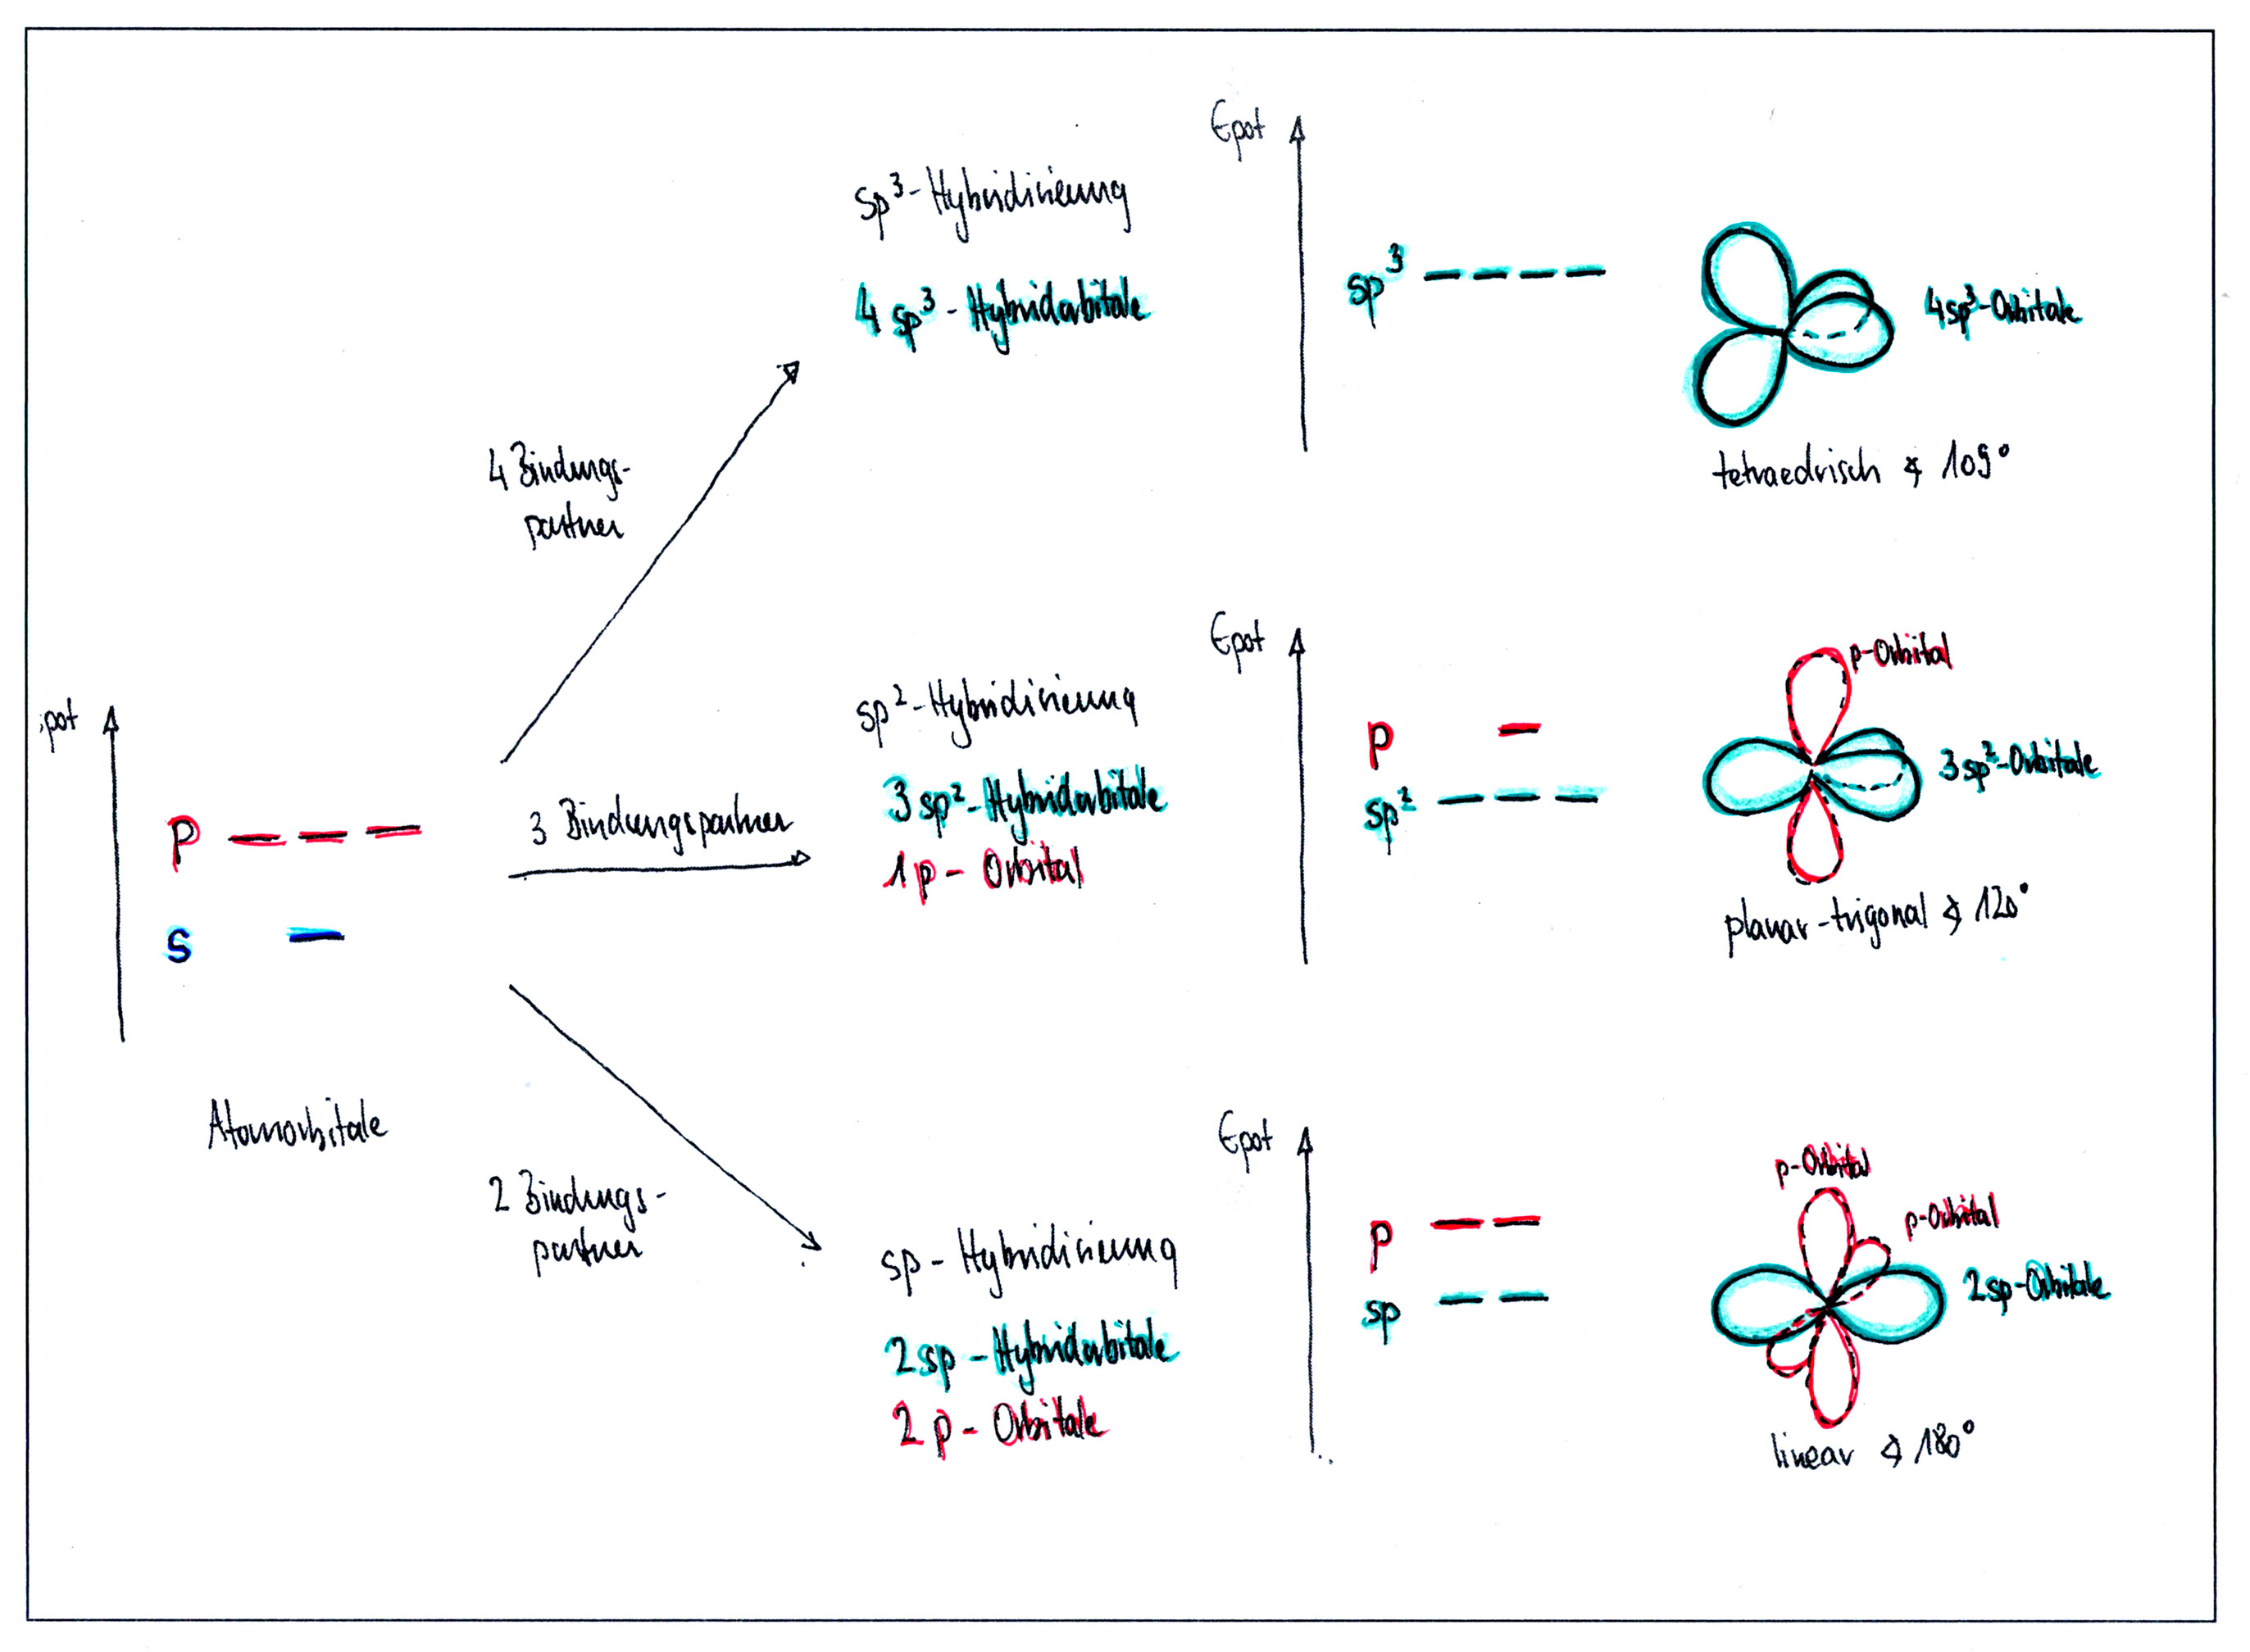 Epot
sp³-Hybridisierung
4 sp³-Hybridorbitale
sp³
4sp³-Orbitale
tetraedrisch ∢ 109°
4 Bindungs-
partner
Epot
p-Orbital
sp²-Hybridisierung
3 sp²-Hybridorbitale
1 p-Orbital
p
sp²
3 sp²-Orbitale
planar-trigonal ∢ 120°
pot
p
s
3 Bindungspartner
Atomorbitale
2 Bindungs-
partner
Epot
sp-Hybridisierung
2 sp-Hybridorbitale
2 p-Orbitale
p
sp
p-Orbital
p-Orbital
2 sp-Orbitale
linear ∢ 180°